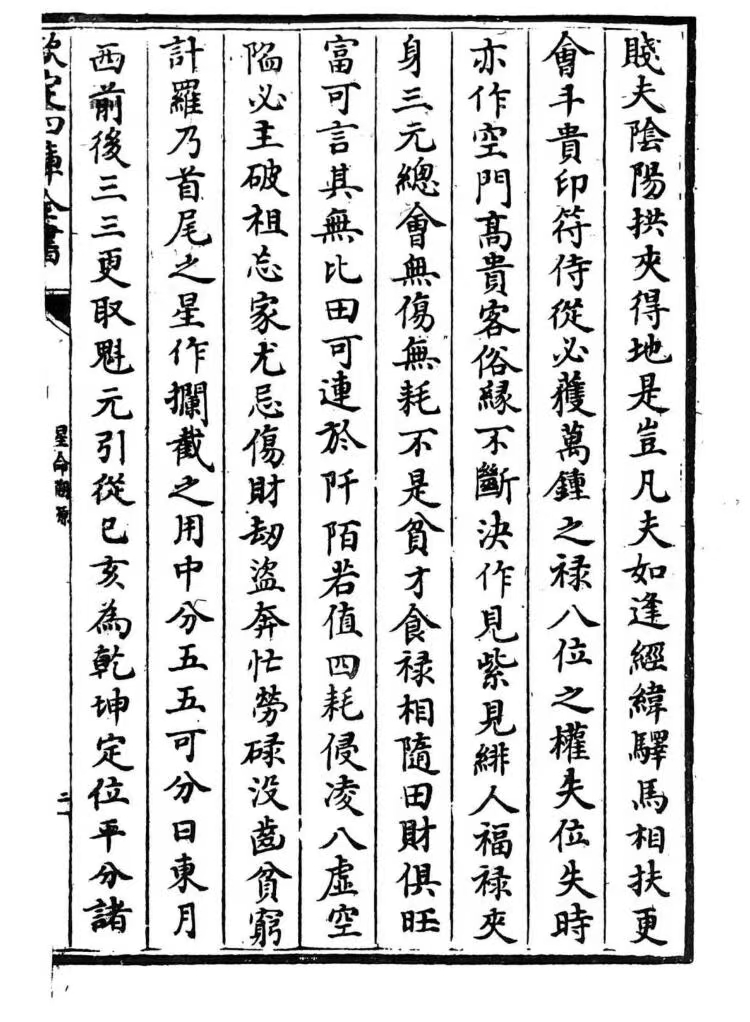 賤夫陰陽拱夾得地是豈凡夫如逢經緯驛馬相扶更
會斗貴印符侍從必獲萬鍾之禄八位之權失位失時
亦作空門髙貴客俗縁不斷決作見紫見緋人福禄夾
身三元總會無傷無耗不是貧才食禄相隨田財俱旺
富可言其無比田可連於阡陌若值四耗侵凌八虚空
陥必主破祖忘家尤忌傷財刼盜奔忙勞碌没齒貧窮
計羅乃首尾之星作攔截之用中分五五可分日東月
西前後三三更取魁元引從巳亥為乾坤定位平分諸
欽定四庫全書
星命溯源
二